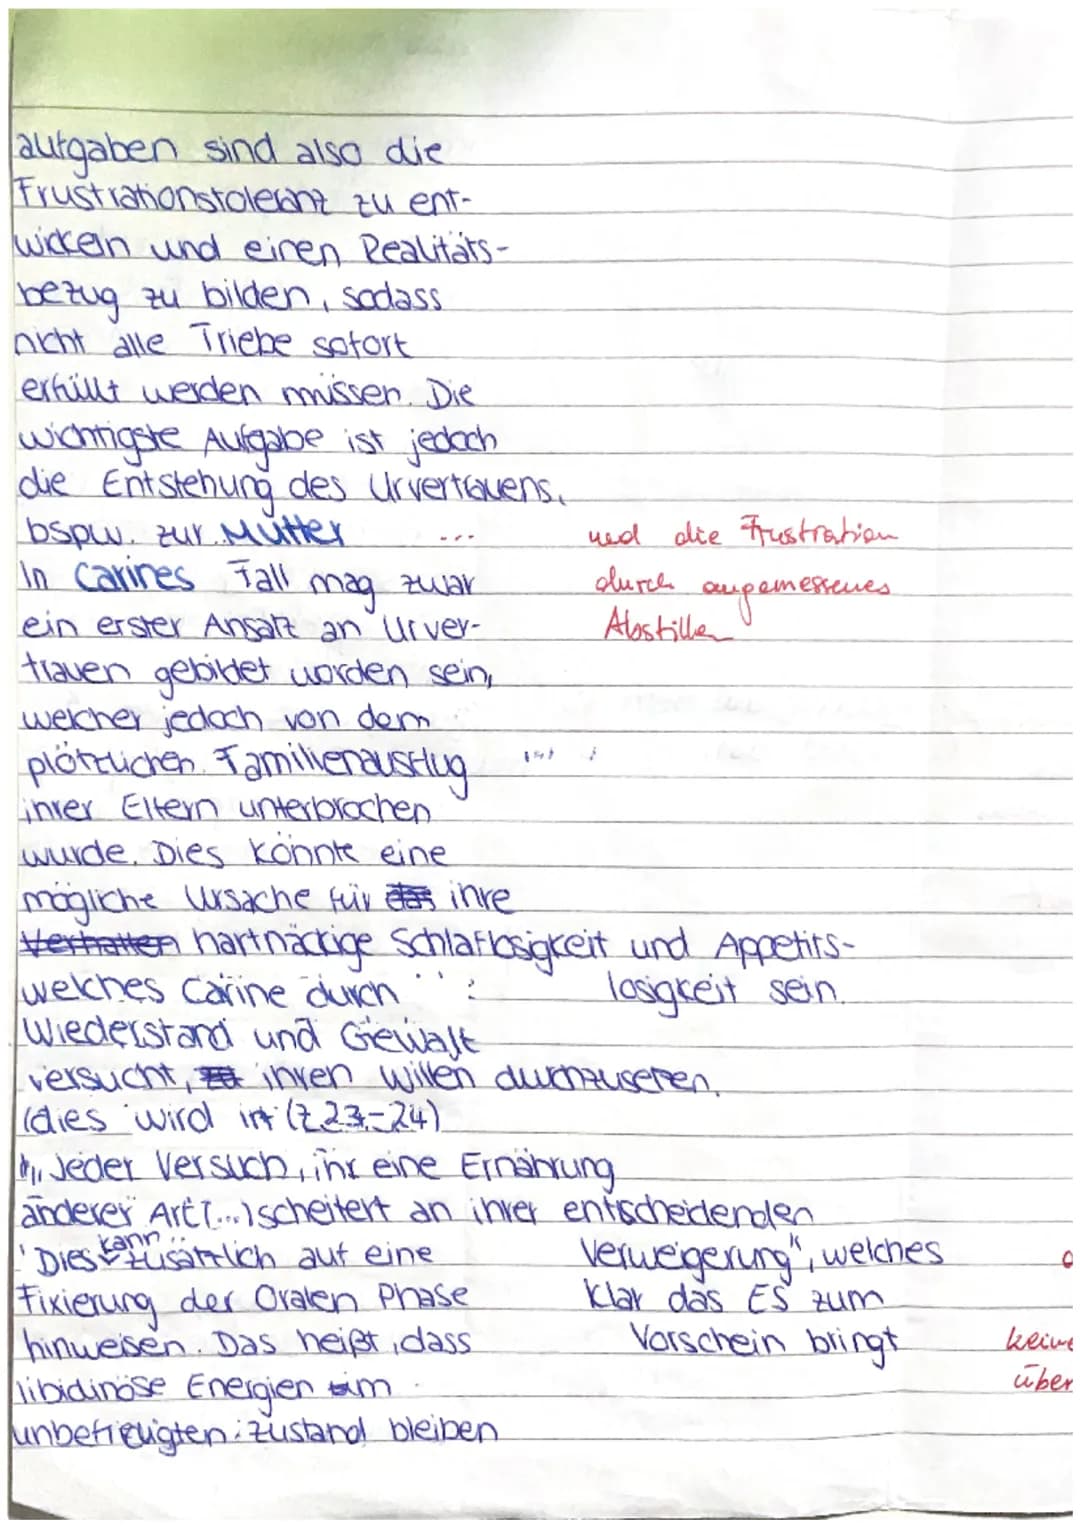 aufgaben sind also die
Frustrationstoleranz zu ent-
wickeln und einen Realitäts-
bezug zu bilden, sodass
nicht alle Triebe sofort
erfüllt werden müssen. Die
wichtigste Aufgabe ist jedoch
die Entstehung des Urvertrauens,
bspw. zur Mutter ... und die Frustration
In Carines Fall mag zwar durch angemessenes
ein erster Ansatz an Urver- Abstillen
trauen gebildet worden sein,
welcher jedoch von dem
plötzlichen Familienausflug
ihrer Eltern unterbrochen
wurde. Dies könnte eine
mögliche Ursache für das ihre
Verhalten hartnäckige Schlaflosigkeit und Appetits-
welches Carine durch losigkeit sein.
Wiederstand und Gewalt
versucht, ihren Willen durchzusetzen,
(dies wird in (Z.23-24)
"Jeder Versuch, ihr eine Ernährung
anderer Art (...) scheitert an ihrer entscheidenden
Dies kann zusätzlich auf eine Verweigerung", welches
Fixierung der Oralen Phase klar das ES zum
hinweisen. Das heißt, dass Vorschein bringt keine
libidinöse Energien im über
unbefriedigten Zustand bleiben